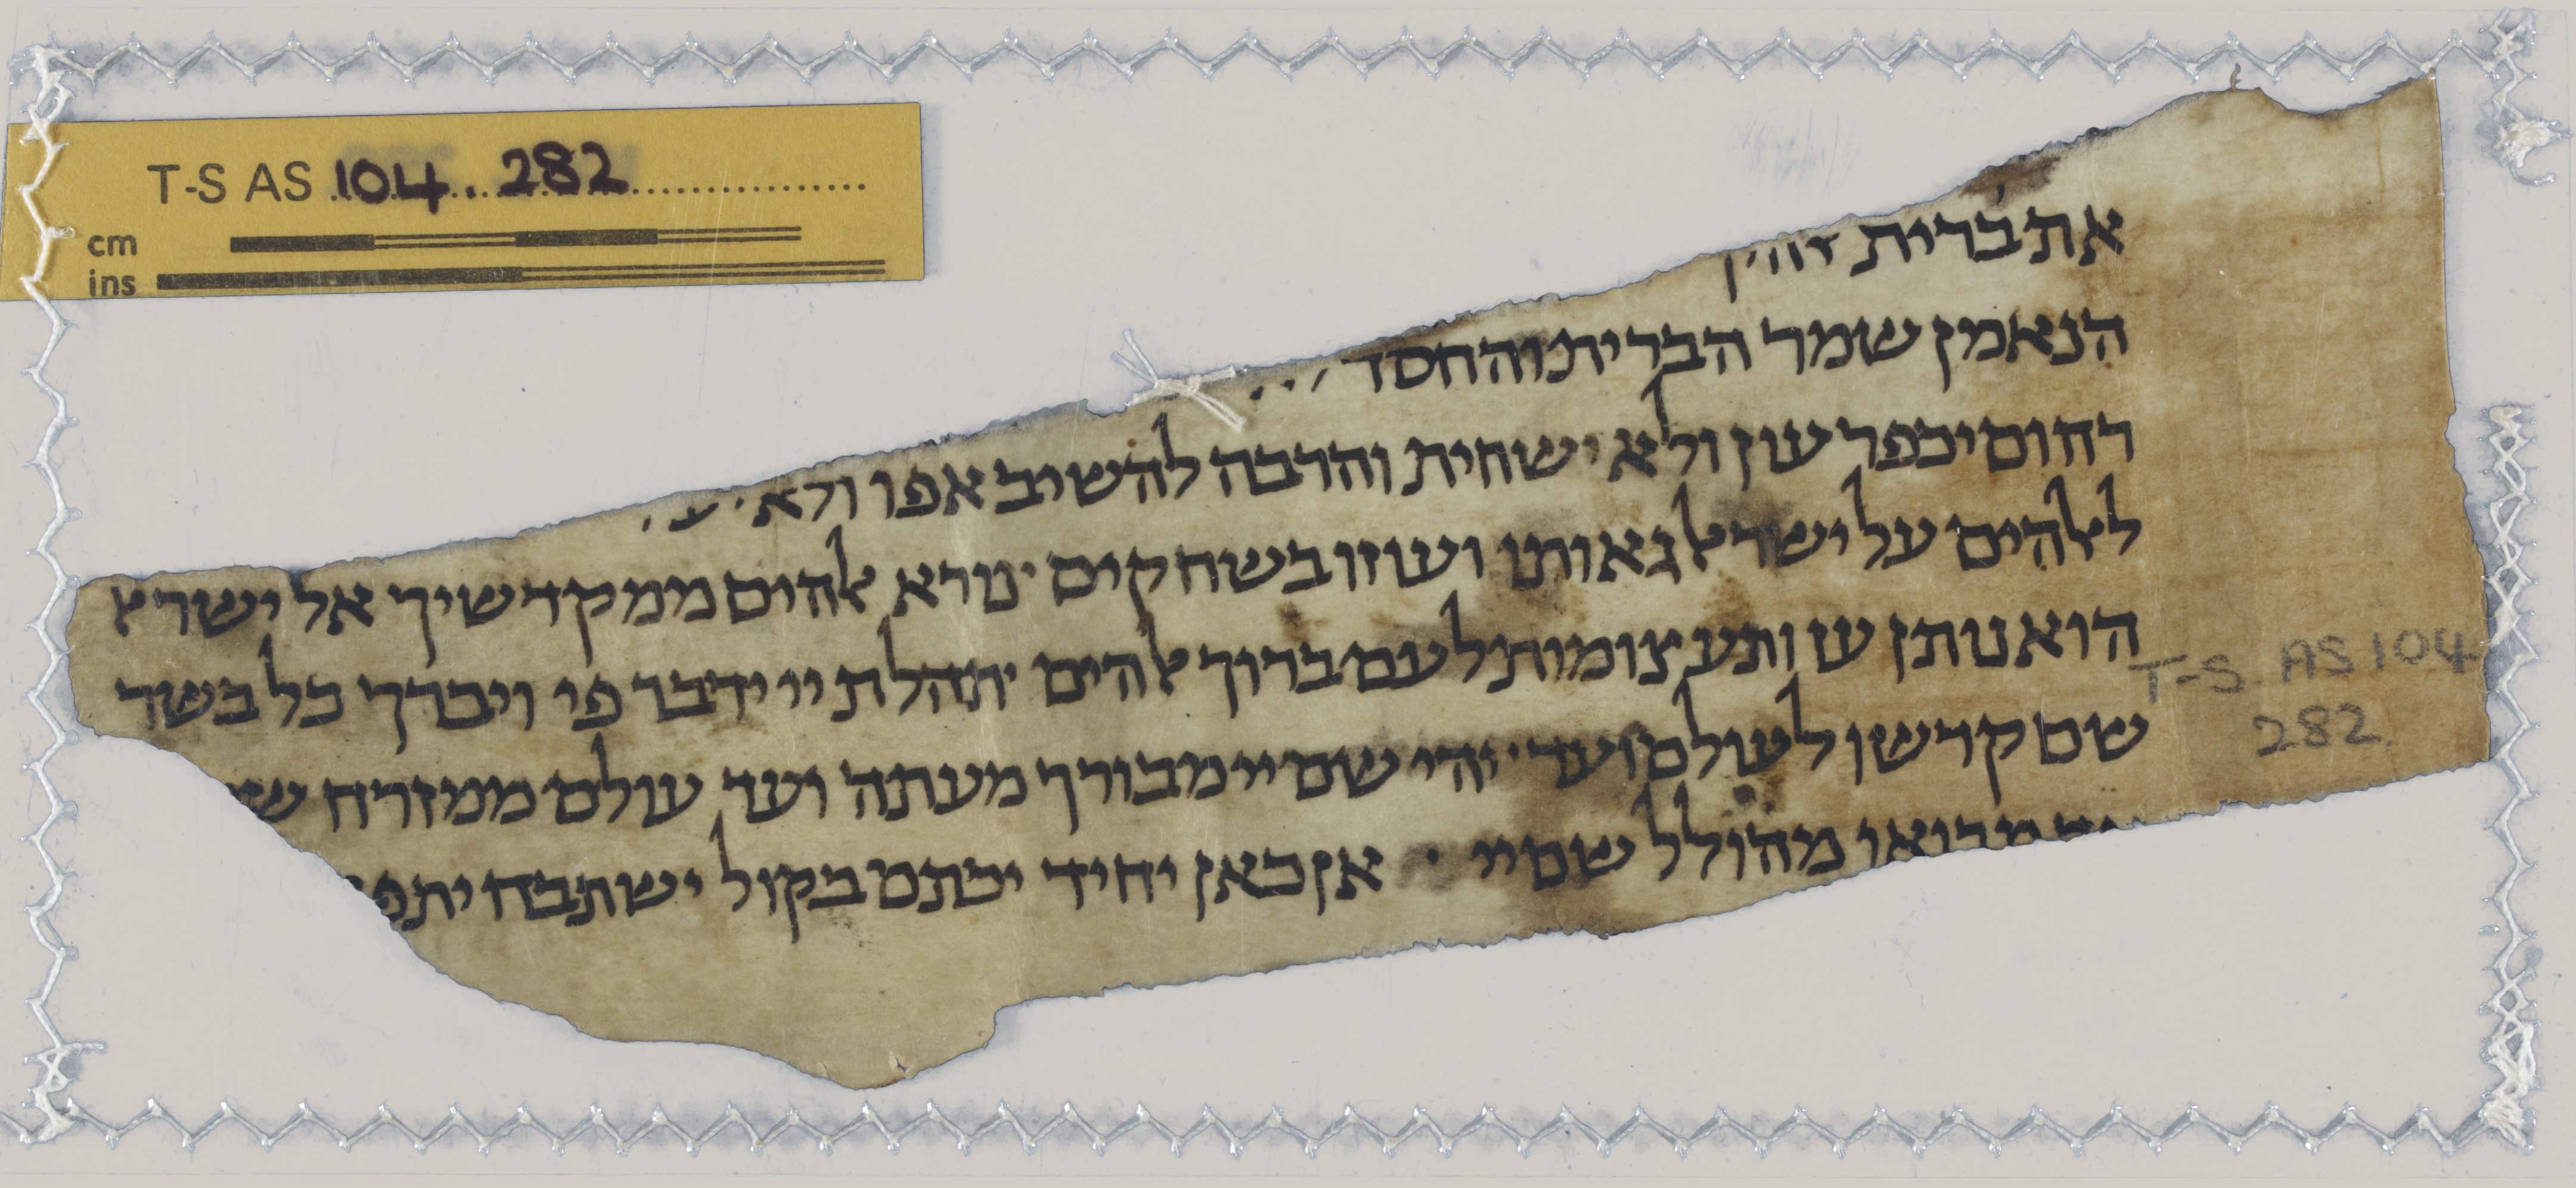 T-S AS 104. 282
cm
ins
את ברית
הנאמן שמר הברית והחסד
רחום יכפר עון ולא ישחית והרבה להשיב אפו ולא
לאלהים על ישראל גאותו ועוזו בשחקים נורא אלהים ממקדשיך אל ישראל
הוא נותן עז ותעצומות לעם ברוך אלהים תהלת ייי ידבר פי ויברך כל בשר
שם קדשו לעולם ועד יהי שם ייי מבורך מעתה ועד עולם ממזרח
מבואו מהולל שם ייי אן כאן יחיד יכתם בקול ישתבח
T-S AS 104
282